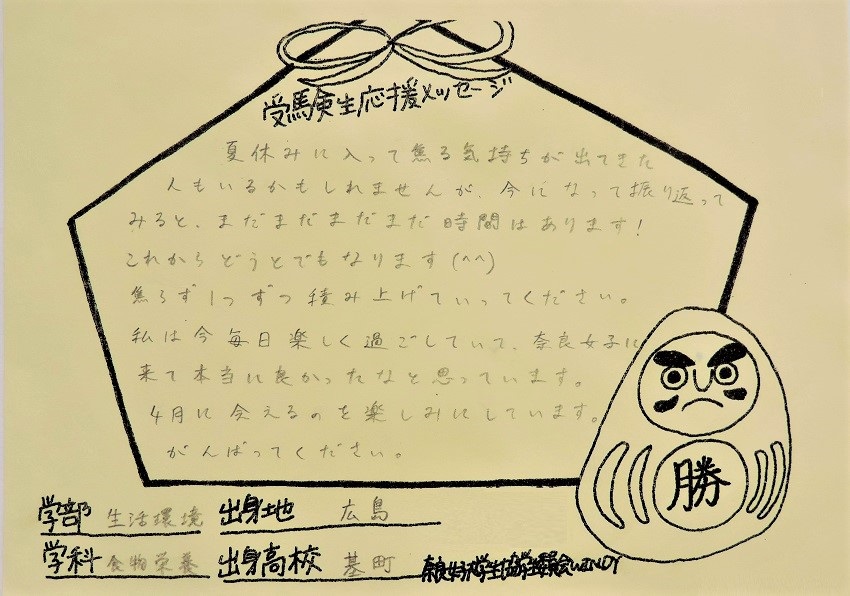 受験生応援メッセージ
夏休みに入って焦る気持ちが出てきた
人もいるかもしれませんが、今になって振り返って
みると、まだまだまだまだ時間はあります!
これからどうとでもなります(^^)
焦らず1つずつ積み上げていってください。
私は今毎日楽しく過ごしていて、奈良女子に
来て本当に良かったなと思っています。
4月に会えるのを楽しみにしています。
がんばってください。
勝
学部 生活環境 出身地 広島
学科 食物栄養 出身高校 基町
奈良女子大学生協学生委員会WINDY